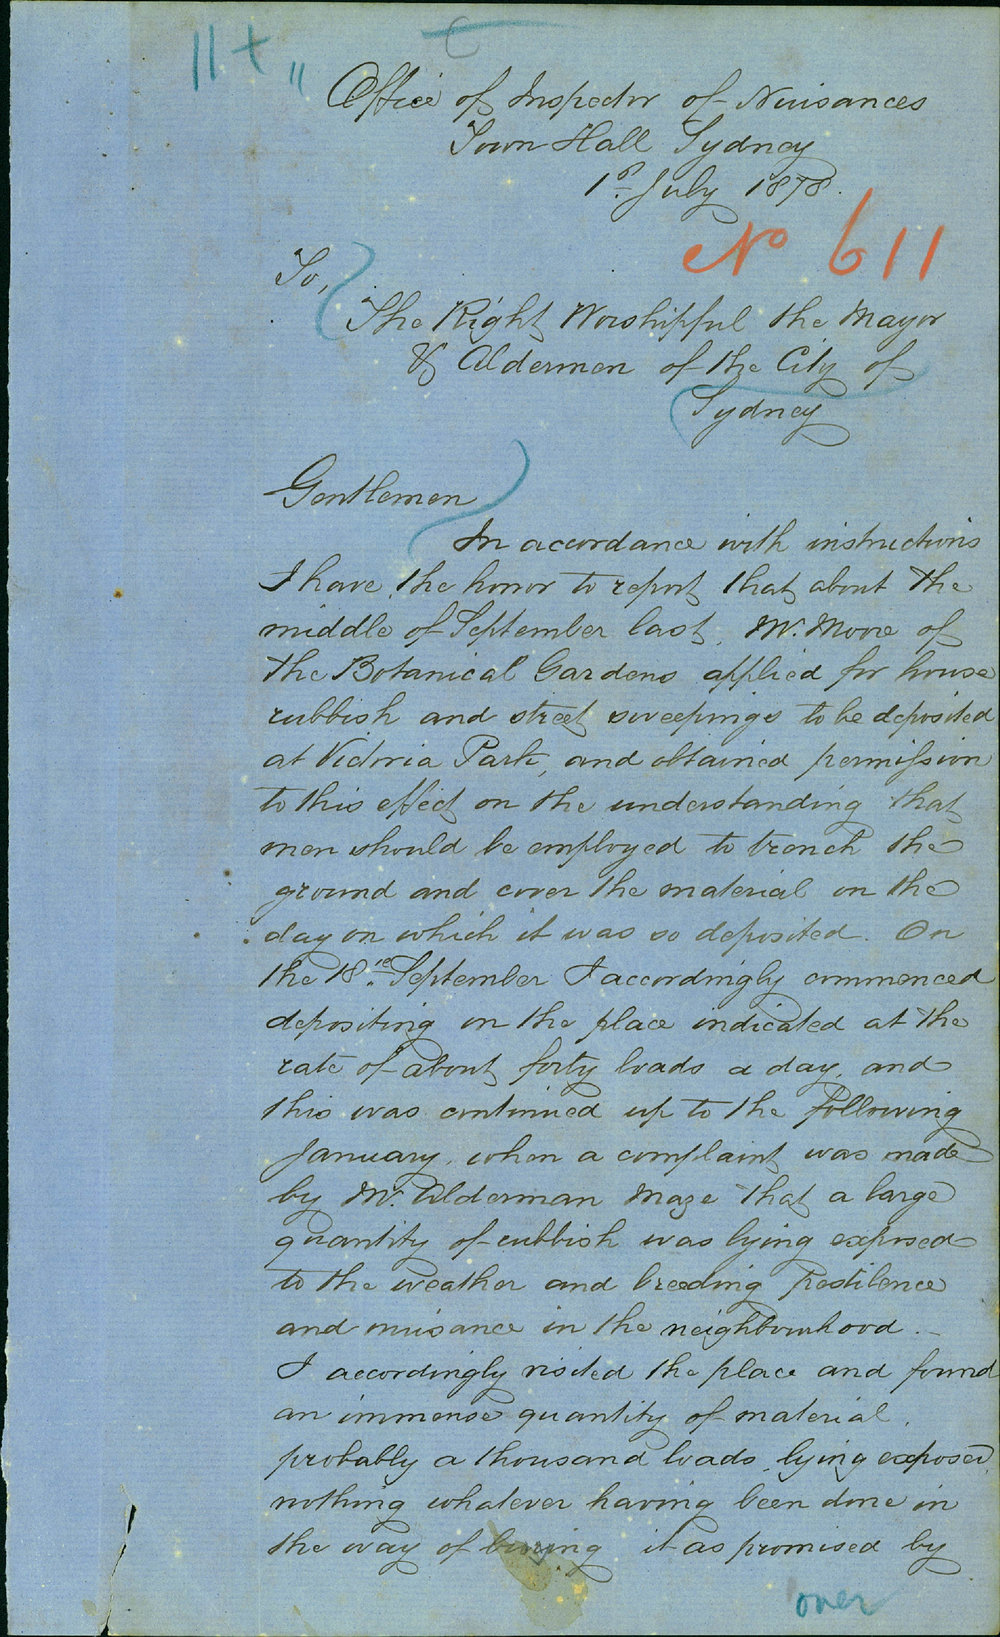 Office of Inspector of Nuisances
Town Hall Sydney
1st July 1878.
No 611
To,
The Right Worshipful the Mayor
& Aldermen of the City of
Sydney
Gentlemen
In accordance with instructions
I have the honor to report that about the
middle of September last, Mr. Moore of
the Botanical Gardens applied for house
rubbish and street sweepings to be deposited
at Victoria Park, and obtained permission
to this effect on the understanding that
men should be employed to trench the
ground and cover the material on the
day on which it was so deposited. On
the 18th September I accordingly commenced
depositing on the place indicated at the
rate of about forty loads a day, and
this was continued up to the following
January, when a complaint was made
by Mr. Alderman Maze that a large
quantity of rubbish was lying exposed
to the weather and breeding pestilence
and nuisance in the neighbourhood.
I accordingly visited the place and found
an immense quantity of material,
probably a thousand loads, lying exposed,
nothing whatever having been done in
the way of burying it as promised by
over